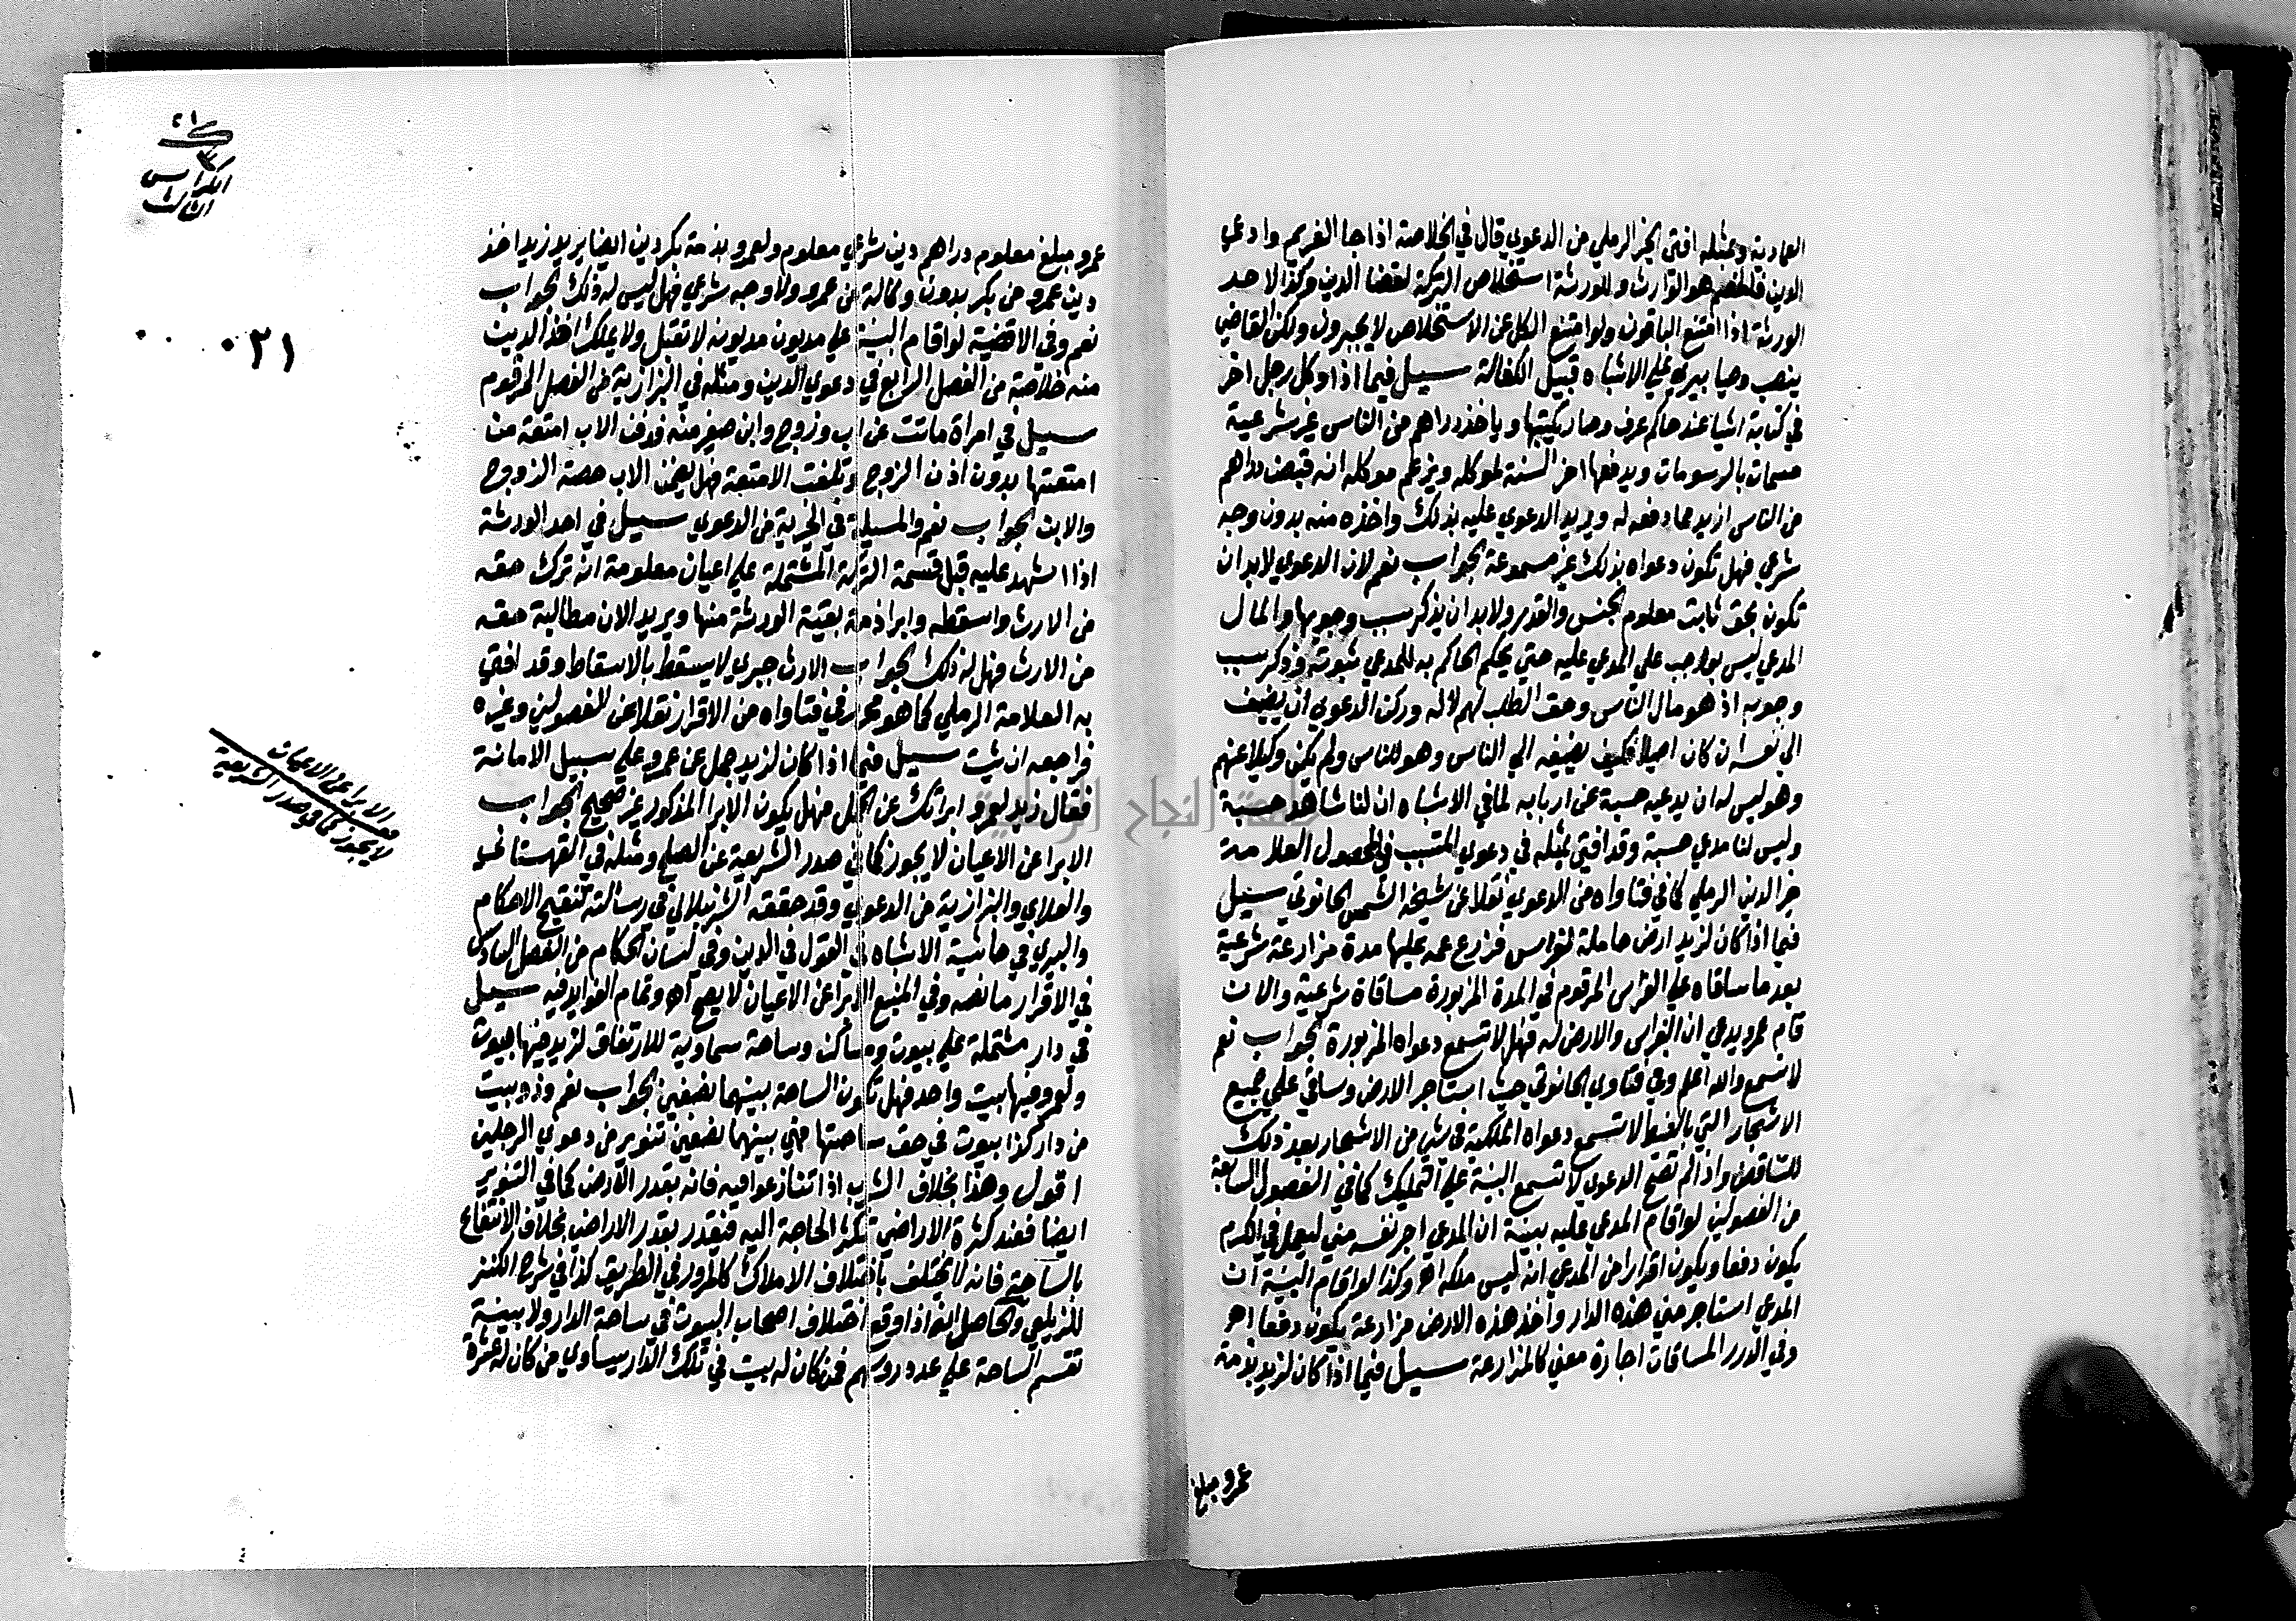 العمادية وبمثله افتى الخير الرملي من الدعوي قال في الخلاصة اذا جا الغريم وادعي
الدين فالخصم هو الوارث وللورثة استخلاص التركة لقضا الدين وكذا لاحد
الورثة اذا امتنع الباقون ولو امتنع الكل عن الاستخلاص لا يجبرون ولكن القاضي
ينصب وصيا بيري علي الاشباه قبيل الكفالة سيل فيما اذا وكل رجل اخر
في كتابة اشيا عند حاكم عرف وصار يكتبها وياخذ دراهم من الناس غير شرعية
مسمات بالرسومات ويدفعها اخر السنة لموكله ويزعم موكله انه قبض دراهم
من الناس ازيد مما دفعه له ويريد الدعوي عليه بذلك واخذه منه بدون وجه
شرعي فهل تكون دعواه بذلك غير مسموعة الجواب نعم لان الدعوي لابد ان
تكون بحق ثابت معلوم الجنس والقدر ولا بد ان يذكر سبب وجوبها والمال
المدعي ليس بواجب علي المدعي عليه حتي يحكم الحاكم به للمدعي بثبوته وذكر سبب
وجوبه اذ هو مال الناس وحق الطلب لهم لا له وركن الدعوي ان يضيف
الي نفسه ان كان اصيلا فكيف يضيفه الي الناس وهو للناس ولم يكن وكيلا عنهم
وهو ليس له ان يدعيه حسبة عن اربابه لما في الاشباه ان لنا شاهد حسبة
وليس لنا مدعي حسبة وقد افتى بمثله في دعوي المتسبب في المحصول العلامة
خير الدين الرملي كما في فتاواه من الدعوي نقلا عن شيخه الشمس الحانوتي سيل
فيما اذا كان لزيد ارض حاملة لغراس فزارع عمه عليها مدة مزارعة شرعية
بعد ما ساقاه علي الغراس المرقوم في المدة المزبورة مساقاة شرعية والان
قام عمر ويدعي ان الغراس والارض له فهل لا تسمع دعواه المزبورة الجواب نعم
لا تسمع والله اعلم وفي فتاوي الحانوتي حيث استاجر الارض وساقي علي جميع
الاشجار التي بالغيط لا تسمع دعواه الملكية في شي من الاشجار بعد ذلك
للتناقض واذا لم تصح الدعوي لا تسمع البينة علي التمليك كما في الفصول السابعة
من الفصولين لو اقام المدعي عليه بينة ان المدعي اجر نفسه مني ليعمل في الكرم
يكون دفعا ويكون اقرارا من المدعي انه ليس ملكه اهـ وكذا لو اقام البينة ان
المدعي استاجر مني هذه الدار واخذ هذه الارض مزارعة يكون دفعا اهـ
وفي الدرر المساقات اجارة معني كالمزارعة سيل فيما اذا كان لزيد بذمة
عمرو مبلغ
عمرو مبلغ معلوم دراهم دين شرعي معلوم ولعمرو بذمة بكر دين ايضا يريد زيد اخذ
دين عمرو من بكر بدون وكالة من عمرو ولا وجه شرعي فهل ليس له ذلك الجواب
نعم وفي الاقضية لو اقام البينة علي مديون مديونه لا تقبل ولا يملك اخذ الدين
منه خلاصة من الفصل الرابع في دعوي الدين ومثله في البزازية من الفصل المرقوم
سيل في امراة ماتت عن اب وزوج وابن صغير منه فدفن الاب امتعة من
امتعتها بدون اذن الزوج وتلفت الامتعة فهل يضمن الاب حصة الزوج
والابن الجواب نعم والمسيلة في الخيرية من الدعوي سيل في احد الورثة
اذا اشهد عليه قبل قسمة التركة المشتملة علي اعيان معلومة انه ترك حقه
من الارث واسقطه وابرا ذمة بقية الورثة منها ويريد الان مطالبة حقه
من الارث فهل له ذلك الجواب الارث جبري لا يسقط بالاسقاط وقد افتى
به العلامة الرملي كما هو محرر في فتاواه من الاقرار نقلا عن الفصولين وغيره
فراجعه ان شيت سيل فيما اذا كان لزيد جمل عن عمرو علي سبيل الامانة
فقال زيد لعمرو ابراتك عن الجمل فهل يكون الابرا المذكور غير صحيح الجواب
الابرا عن الاعيان لا يجوز كما في صدر الشريعة عن الصلح ومثله في القهستاني
والعلاي والبزازية من الدعوي وقد حققه الشرنبلالي في رسالته تنقيح الاحكام
والبيري في حاشية الاشباه في القول في الدين وفي لسان الحكام من الفصل السادس
في الاقرار ما نصه وفي المنبع الابرا عن الاعيان لا يصح اهـ وتمام الفوايد فيه سيل
في دار مشتملة علي بيوت ومساكن وساحة سماوية للارتفاق لزيد فيها بيوت
ولعمرو فيها بيت واحد فهل تكون الساحة بينهما نصفين الجواب نعم وذو بيت
من دار كذا بيوت في حق ساحتها فهي بينهما نصفين تنوير من دعوي الرجلين
اقول وهذا بخلاف الشرب اذا تنازعوا فيه فانه بقدر الارض كما في التنوير
ايضا فعند كثرة الاراضي تكثر الحاجة اليه فيتقدر بقدر الاراضي بخلاف الانتفاع
بالساحة فانه لا يختلف باختلاف الاملاك كالمرور في الطريق كذا في شرح الكنز
للزيلعي والحاصل انه اذا وقع اختلاف اصحاب البيوت في ساحة الدار ولا بينة
تقسم الساحة علي عدد روسهم فمن كان له بيت في تلك الدار يساوي من كان له عشرة
الكراس
الثالث
٠٢١
الابرا عن الاعيان
لا يجوز كما في صدر الشريعة
جامعة النجاح الوطنية